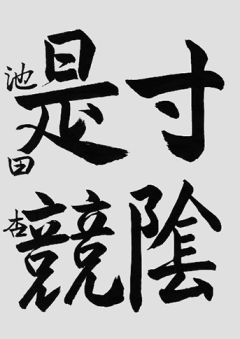 寸陰
是競
池田杏